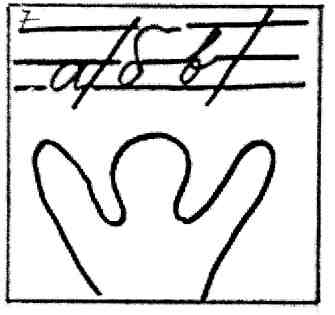 7
а/ б в/